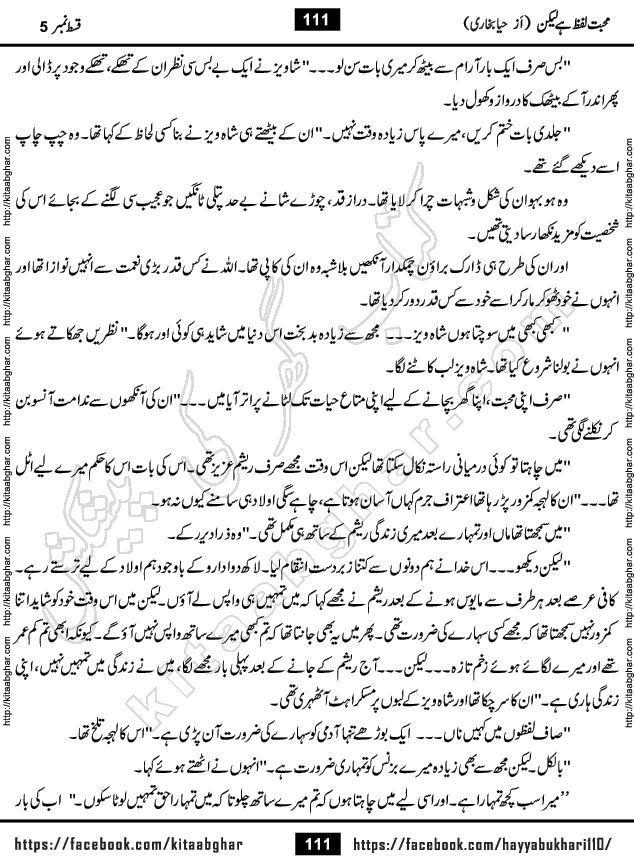 محبت لفظ ہے لیکن (از حیا بخاری) 111 قسط نمبر 5
"بس صرف ایک بار آرام سے بیٹھ کر میری بات سن لو۔۔۔" شاویز نے ایک بے بس سی نظر ان کے تھکے، تھکے وجود پر ڈالی اور
پھر اندر آ کے بیٹھک کا دروازہ کھول دیا۔
"جلدی بات ختم کریں، میرے پاس زیادہ وقت نہیں۔" ان کے بیٹھتے ہی شاہ ویز نے بنا کسی لحاظ کے کہا تھا۔ وہ چپ چاپ
اسے دیکھے گئے تھے۔
وہ ہو بہو ان کی شکل و شبہات چرا کر لایا تھا۔ دراز قد، چوڑے شانے بے حد پتلی ٹانگیں جو عجیب سی لگنے کے بجائے اس کی
شخصیت کو مزید نکھار سا دیتی تھیں۔
اور ان کی طرح ہی ڈارک براؤن چمکدار آنکھیں بلاشبہ وہ ان کی کاپی تھا۔ اللہ نے کس قدر بڑی نعمت سے انہیں نوازا تھا اور
انہوں نے خود ٹھوکر مار کر اسے خود سے کس قدر دور کر دیا تھا۔
"کبھی کبھی میں سوچتا ہوں شاہ ویز۔۔۔ مجھ سے زیادہ بد بخت اس دنیا میں شاید ہی کوئی اور ہوگا۔" نظریں جھکاتے ہوئے
انہوں نے بولنا شروع کیا تھا۔ شاہ ویز لب کاٹنے لگا۔
"صرف اپنی محبت، اپنا گھر بچانے کے لیے اپنی متاع حیات تک لٹانے پر اتر آیا میں ۔۔۔" ان کی آنکھوں سے ندامت آنسو بن
کر نکلنے لگی تھی۔
"میں چاہتا تو کوئی درمیانی راستہ نکال سکتا تھا لیکن اس وقت مجھے صرف ریشم عزیز تھی۔ اس کی بات اس کا حکم میرے لیے اٹل
تھا۔۔۔" ان کا لہجہ کمزور پڑ رہا تھا اعتراف جرم کہاں آسان ہوتا ہے، چاہے سگی اولاد ہی سامنے کیوں نہ ہو۔
"میں سمجھتا تھا ماں اور تمہارے بعد میری زندگی ریشم کے ساتھ ہی مکمل تھی۔" وہ ذرا دیر رکے۔
"لیکن دیکھو۔۔۔ اس خدا نے ہم دونوں سے کتنا زبردست انتقام لیا۔ لاکھ دوا دارو کے باوجود ہم اولاد کے لیے ترستے رہے۔
کافی عرصے بعد ہر طرف سے مایوس ہونے کے بعد ریشم نے مجھے کہا کہ میں تمہیں ہی واپس لے آؤں۔ لیکن میں اس وقت خود کو شاید اتنا
کمزور نہیں سمجھتا تھا کہ مجھے کسی سہارے کی ضرورت تھی۔ پھر میں یہ بھی جانتا تھا کہ تم کبھی میرے ساتھ واپس نہیں آؤ گے۔ کیونکہ ابھی تم کم عمر
تھے اور میرے لگائے ہوئے زخم تازہ۔۔۔ لیکن۔۔۔ آج ریشم کے جانے کے بعد پہلی بار مجھے لگا، میں نے زندگی میں تمہیں نہیں، اپنی
زندگی ہاری ہے۔" ان کا سر جھکا تھا اور شاہ ویز کے لبوں پر مسکراہٹ آ ٹھہری تھی۔
"صاف لفظوں میں کہیں ناں۔۔۔ ایک بوڑھے تنہا آدمی کو سہارے کی ضرورت آن پڑی ہے۔" اس کا لہجہ تلخ تھا۔
"بالکل۔ لیکن مجھ سے بھی زیادہ میرے بزنس کو تمہاری ضرورت ہے۔" انہوں نے اٹھتے ہوئے کہا۔
"میرا سب کچھ تمہارا ہے۔ اور اسی لیے میں چاہتا ہوں کہ تم میرے ساتھ چلو تا کہ میں تمہارا حق تمہیں لوٹا سکوں۔" اب کی بار
https://facebook.com/kitaabghar 111 https://facebook.com/hayyabukhari110/
http://kitaabghar.com http://kitaabghar.com http://kitaabghar.com http://kitaabghar.com http://kitaabghar.com http://kitaabghar.com
http://kitaabghar.com http://kitaabghar.com http://kitaabghar.com http://kitaabghar.com http://kitaabghar.com http://kitaabghar.com
کتاب گھر کی پیشکش
kitaabghar.com